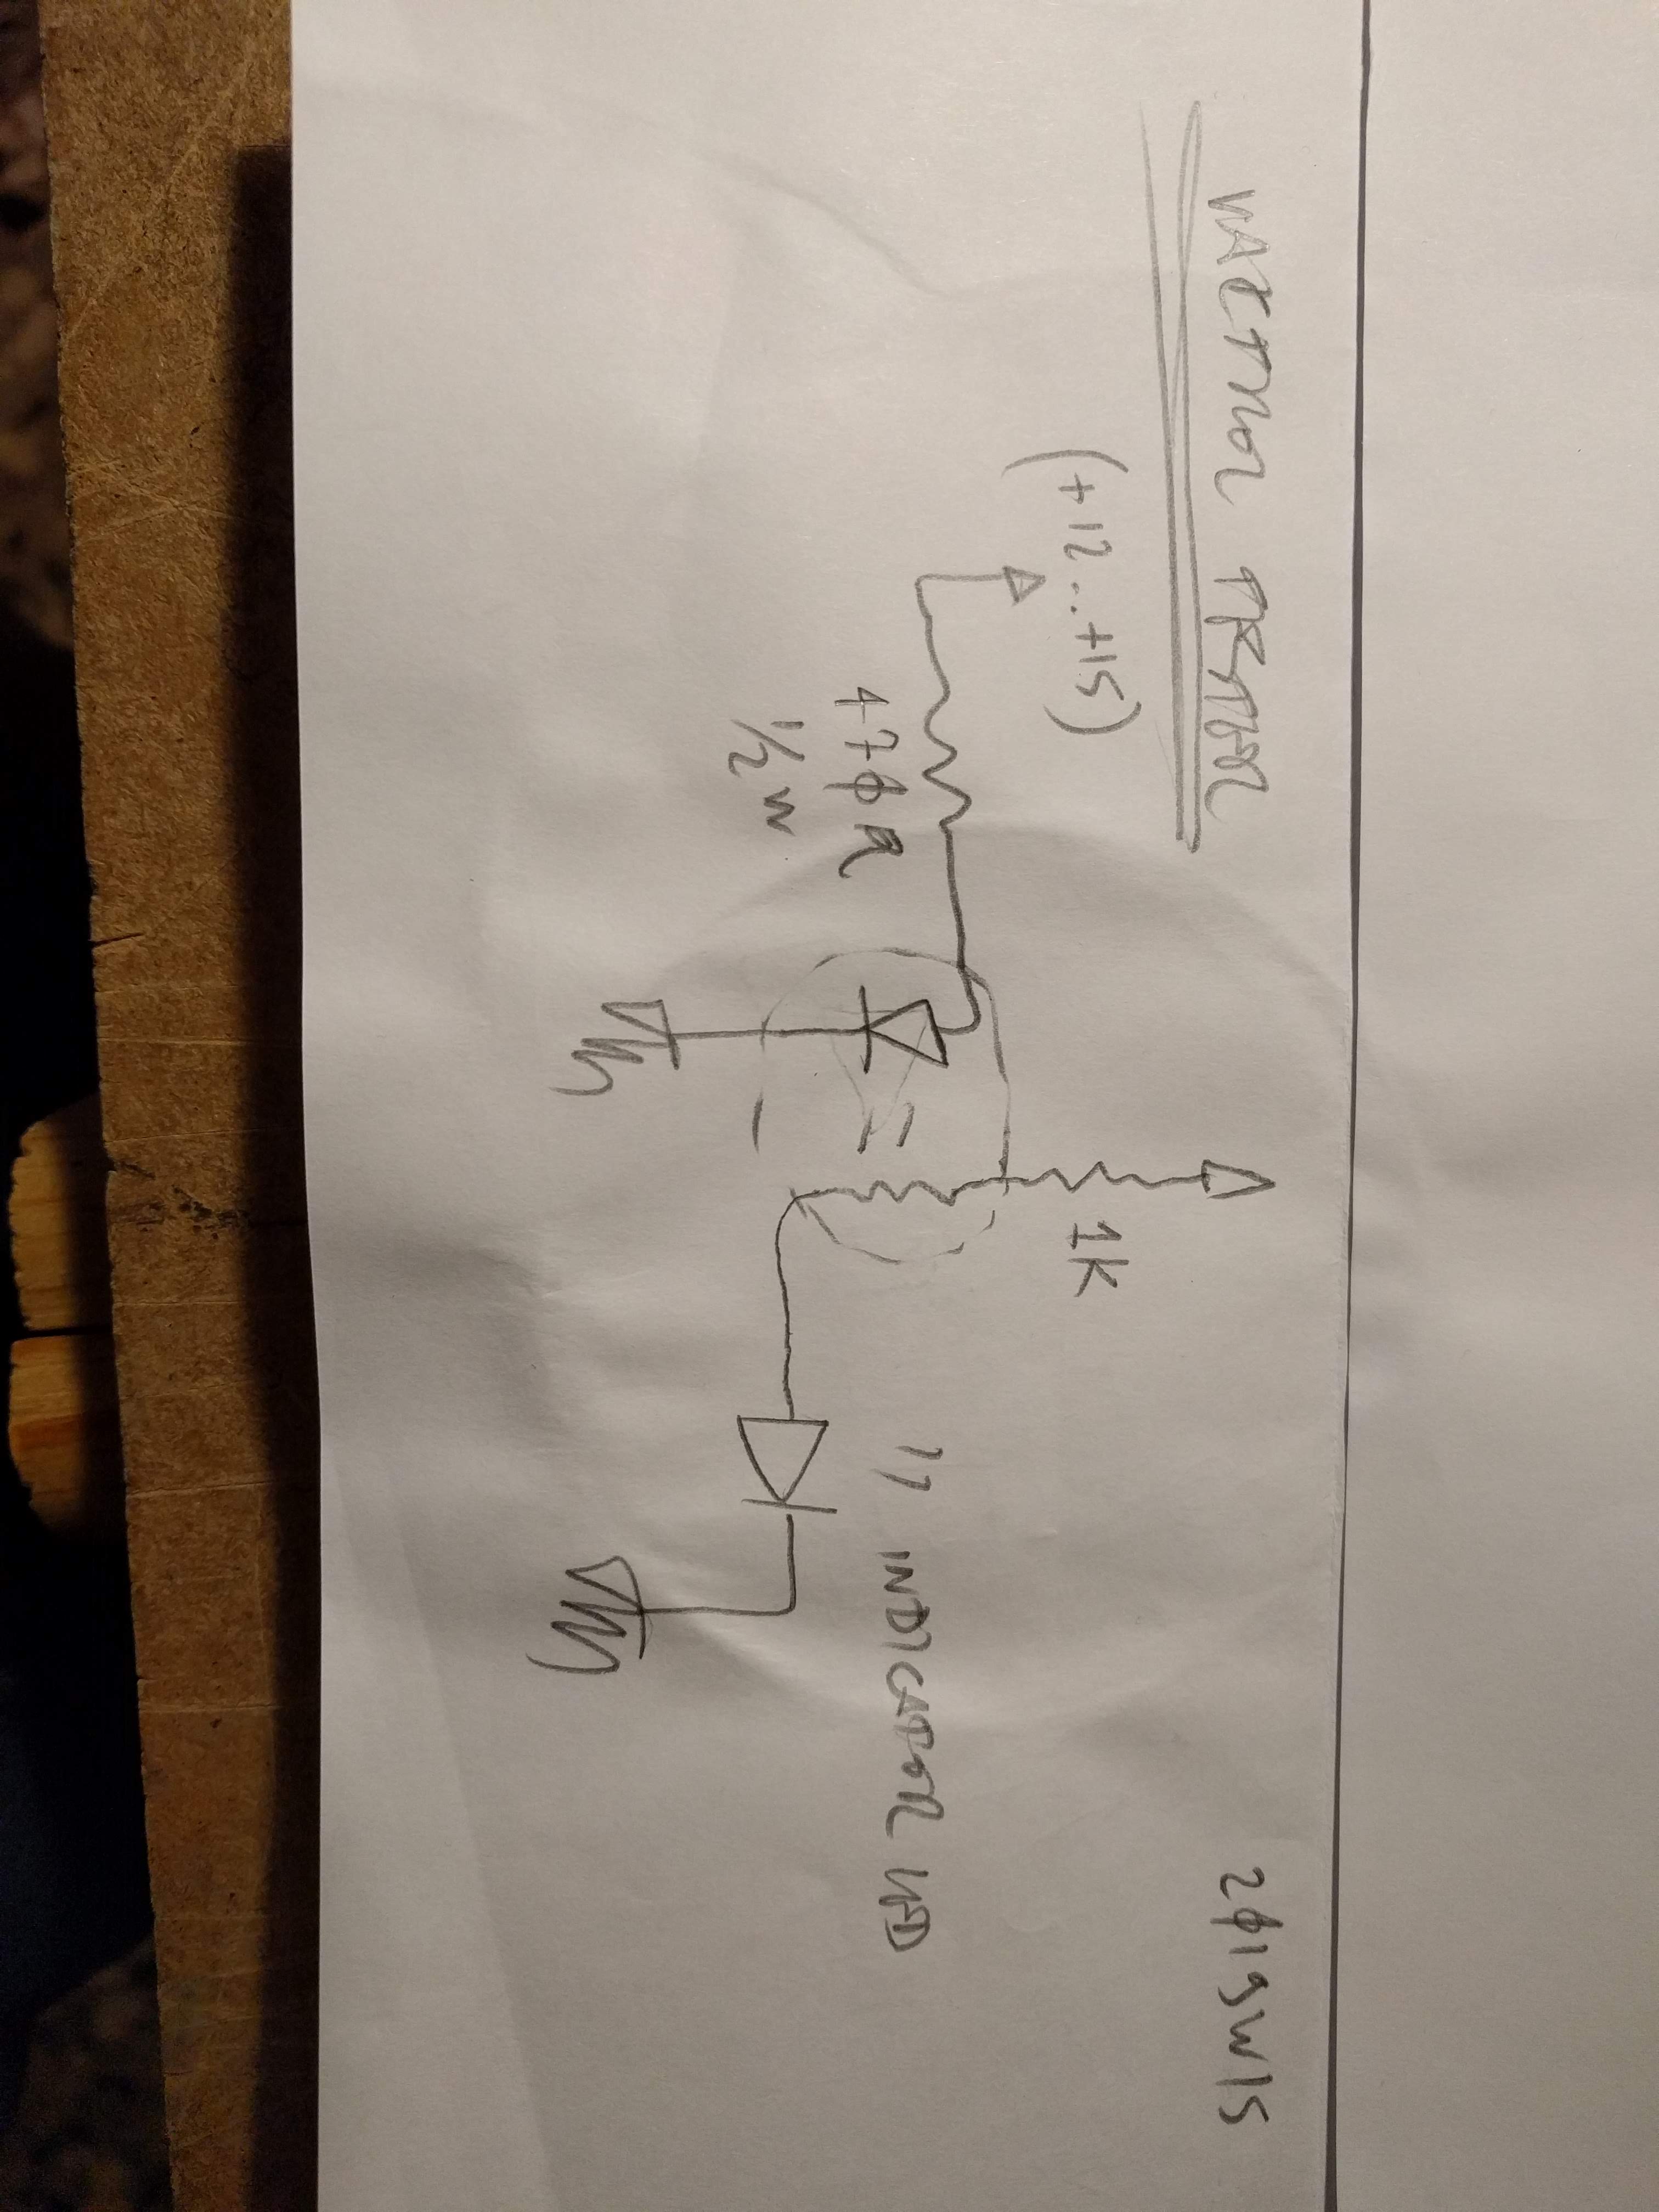 VACTROL TESTER
2019W15
(+12..+15)
1K
470R
1/2 W
INDICATOR LED